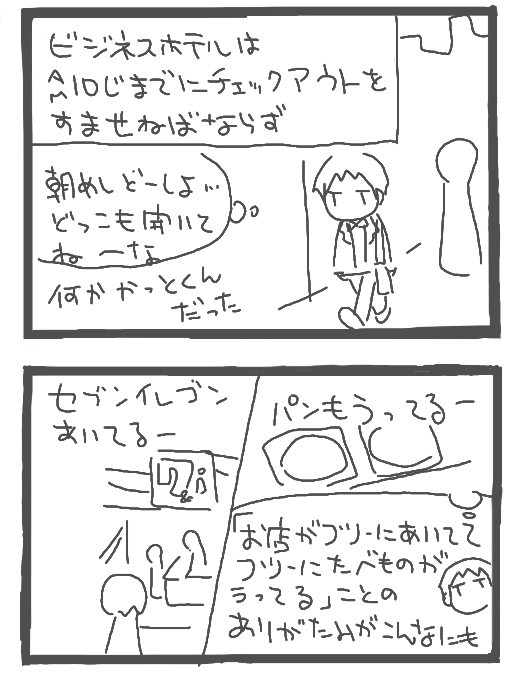 ビジネスホテルは
AM10じまでにチェックアウトを
すませねばならず
朝めしどーしよ…
どっこも開いて
ねーな
何か かっとくん
だった
セブンイレブン
あいてるー
7&i
パンもうってるー
「お店がフツーにあいてて
フツーにたべものが
うってる」ことの
ありがたみがこんなにも